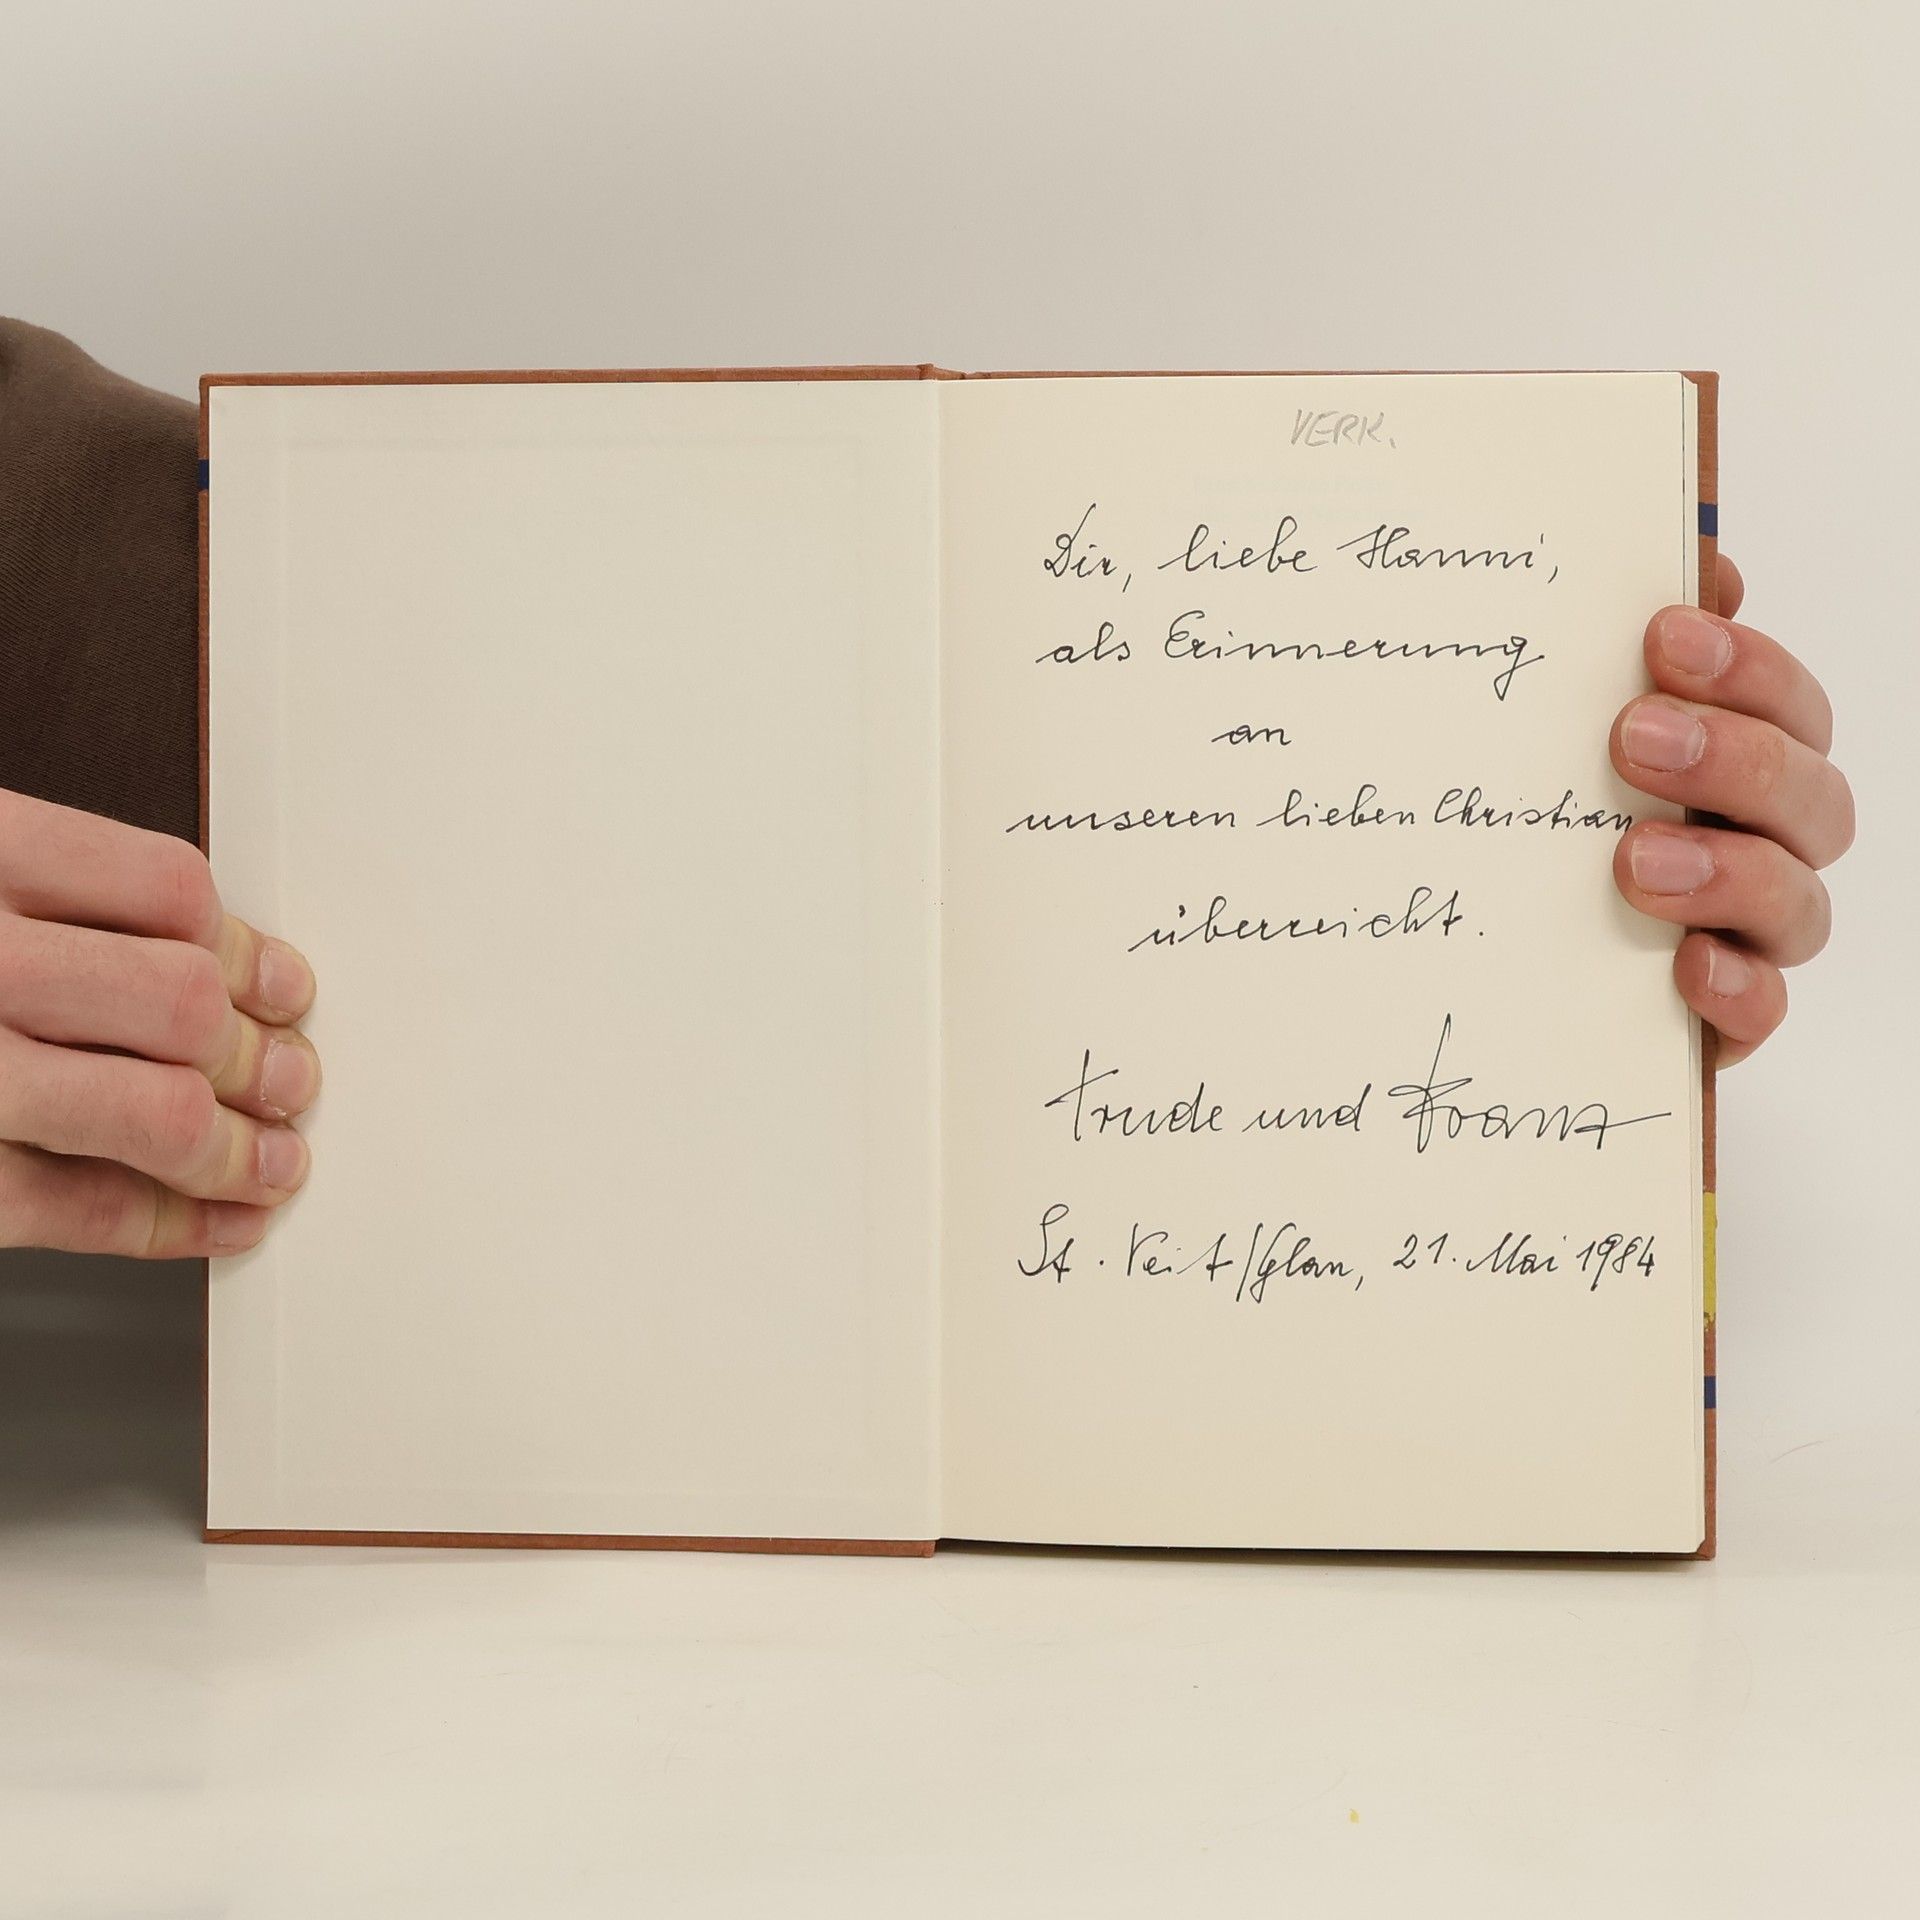 VERK.
Dir, liebe Hanni,
als Erinnerung
an
unseren lieben Christian
überreicht.
Trude und Franz
St. Veit/Glan, 21. Mai 1984